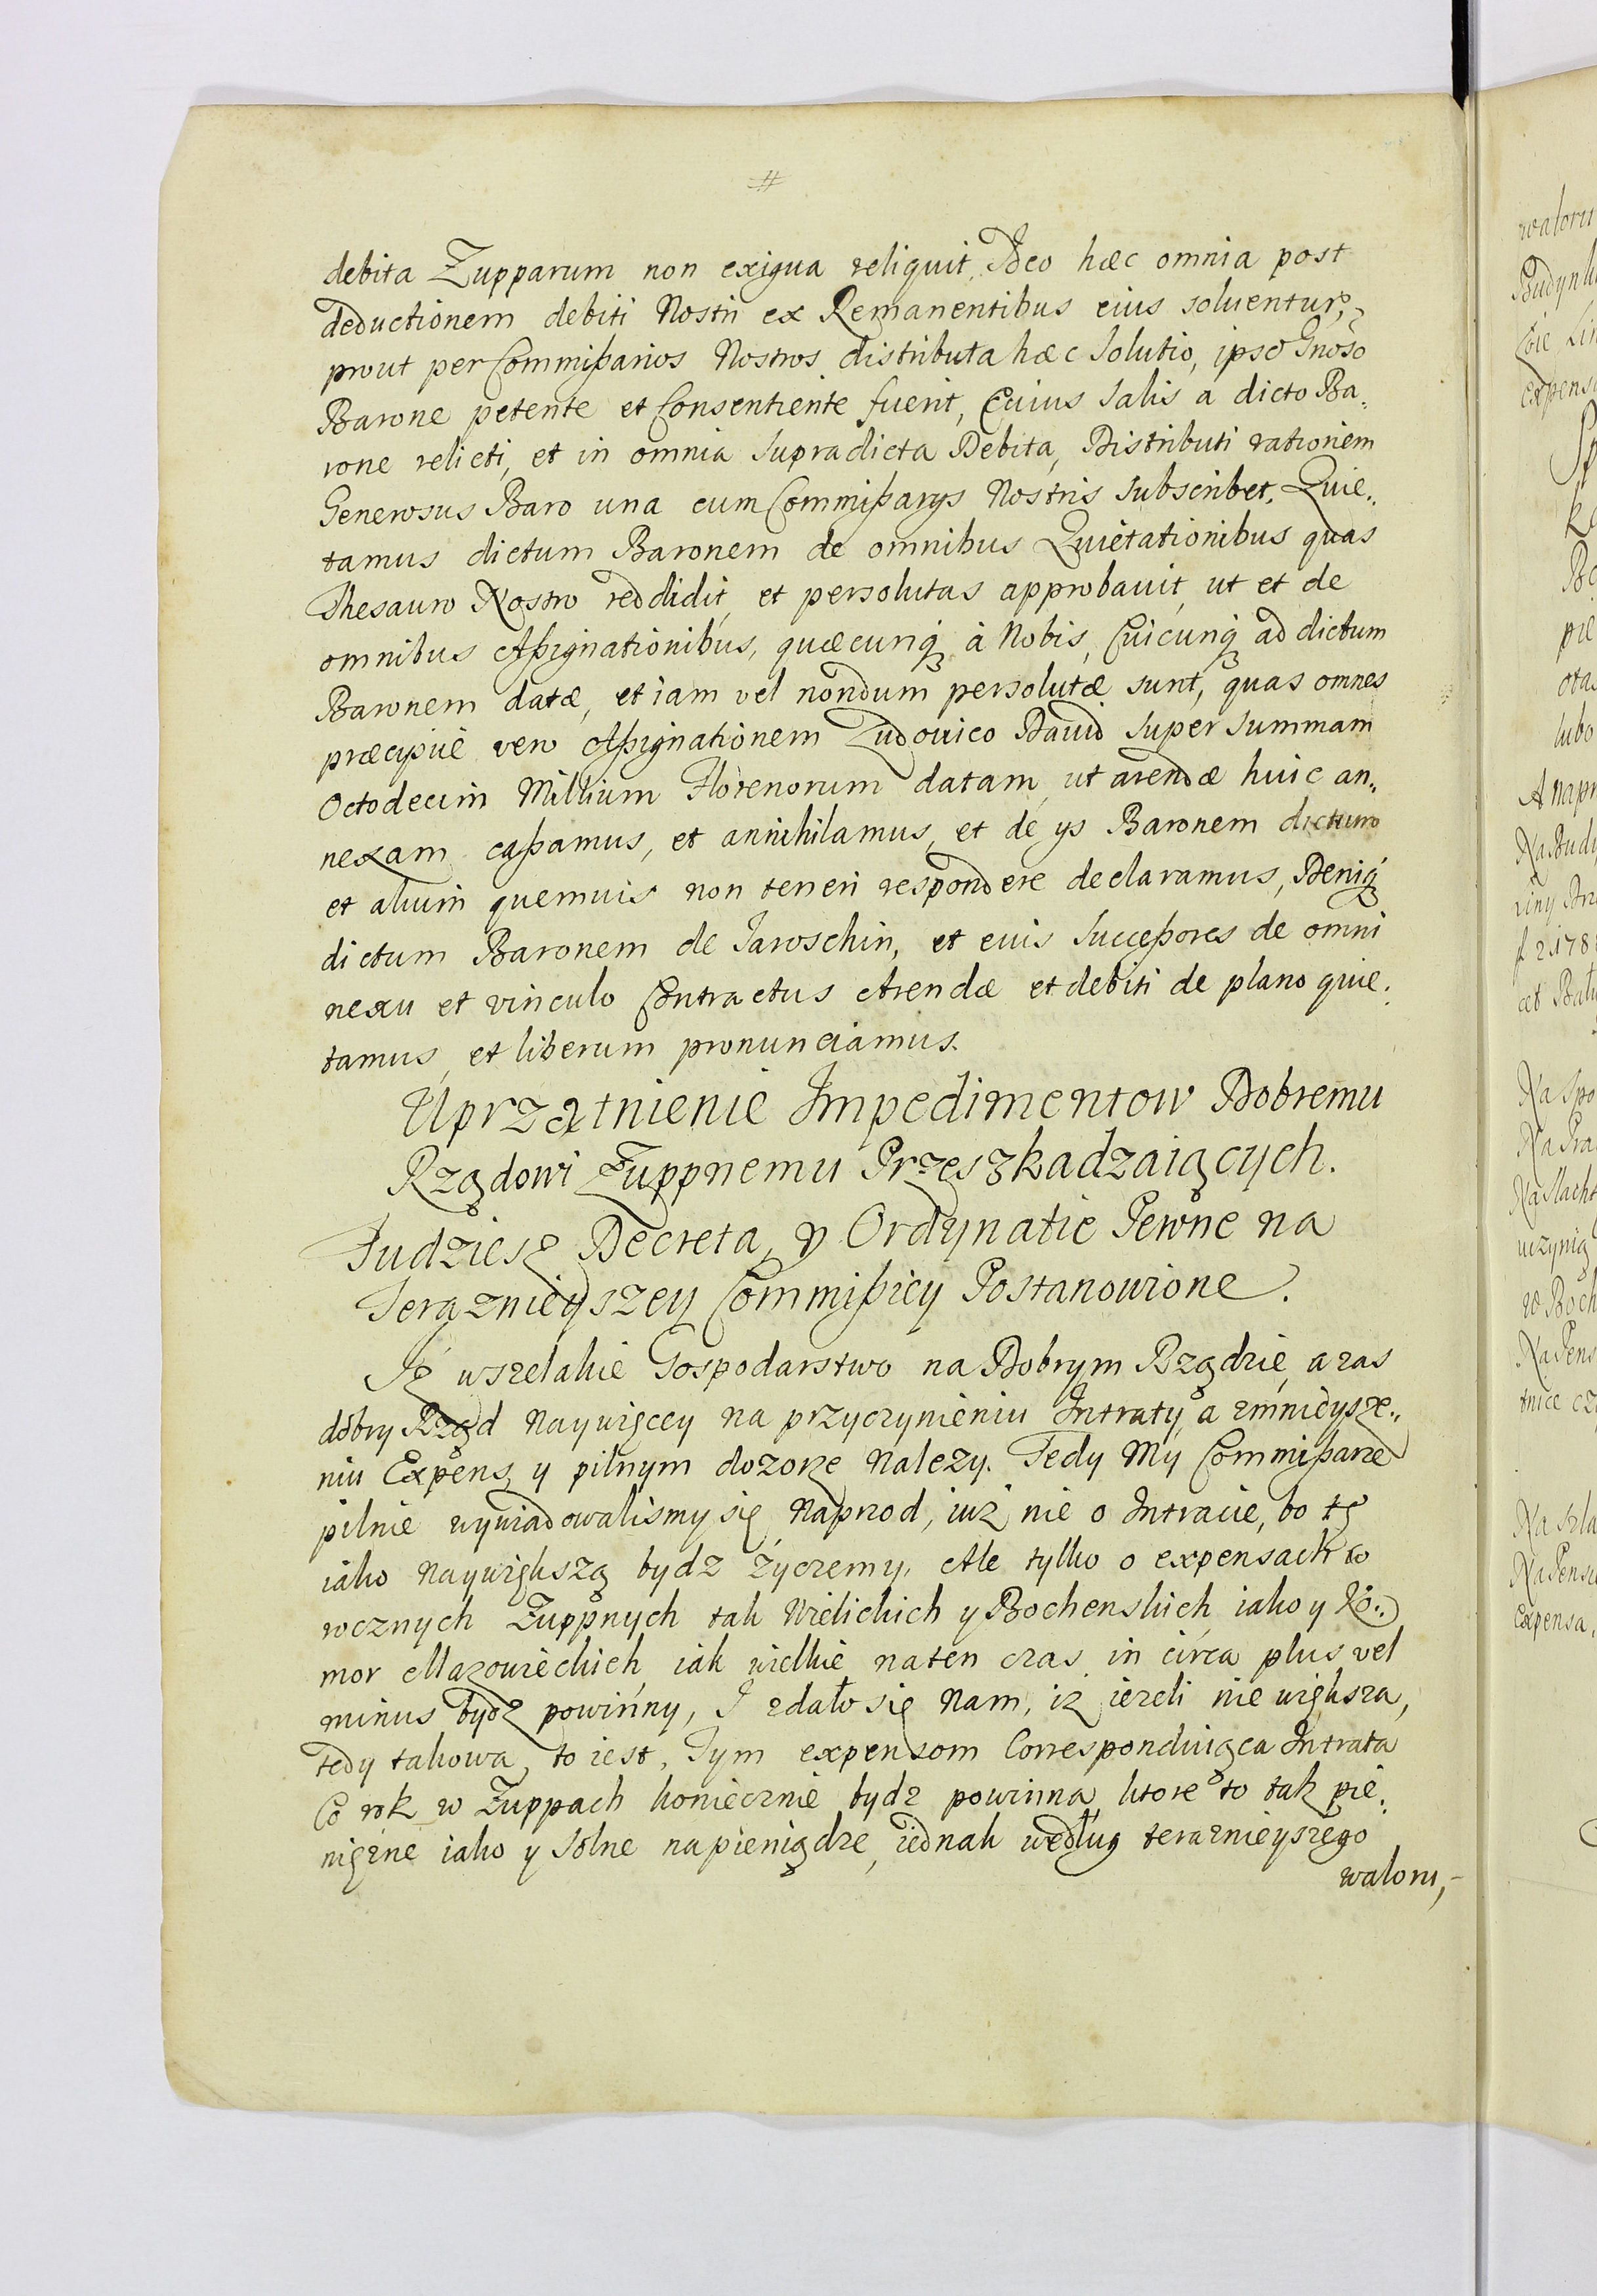 debita Żupparum non exigua reliquit, Ideo hæc omnia post
deductionem debiti Nostri ex Remanentibus eius soluentur,
prout per Commißarios Nostros distributa hæc Solutio, ipso Gnoso
Barone petente et Consentiente fuerit, Cuius Salis a dicto Ba„
rone relicti, et in omnia Supradicta Debita, Distributi rationem
Generosus Baro una cum Commißarys Nostris Subscribet, Quie„
tamus dictum Baronem de omnibus Quietationibus quas
Thesauro Nostro reddidit, et persolutas approbauit, ut et de
omnibus Aßignationibus, quæcunq; à Nobis, Cuicunq; ad dictum
Baronem datæ, et iam vel nondum persolutæ sunt, quas omnes
præcipuè vero Aßignationem Ludouico Dauid Super Summam
Octodecim Millium Florenorum datam, ut arendæ huic an„
nexam caßamus, et annihilamus, et de ys Baronem dictum
et alium quemuis non teneri respondere declaramus, Deniq;
dictum Baronem de Jaroschin, et euis Succeßores de omni
nexu et vinculo Contractus Arendæ et debiti de plano quie„
tamus, et liberum pronunciamus.
Uprzątnienie Impedimentow Dobremu
Rządowi Żuppnemu Przeszkadzaiących.
Tudziesz Decreta, y Ordynatie Pewne na
Teraznieyszey Commißiey Postanowione.
Iż wszelakie Gospodarstwo na Dobrym Rządzie, a zas
dobry Rząd naywięcey na przyczynieniu Intraty a zmnieysze„
niu Expens, y pilnym dozorze nalezy. Tedy My Commißarze
pilnie wywiadowalismy się naprzod, iuż nie o Intracie, bo tę
iako naywiększą bydz życzemy, Ale tylko o expensach to
rocznych Żuppnych tak Wielickich y Bochenskich, iako y Ko„
mor Mazowieckich, iak wielkie na ten czas in circa plus vel
minus bydz powinny, I zdało się nam, iz iezeli nie większa,
tedy takowa, to iest, Tym expensom Correspondujęca Intrata
Co rok w Żuppach koniecznie bydz powinna, ktore to tak pie„
niężne iako y Solne na pieniądze, iednak według teraznieyszego
waloru,